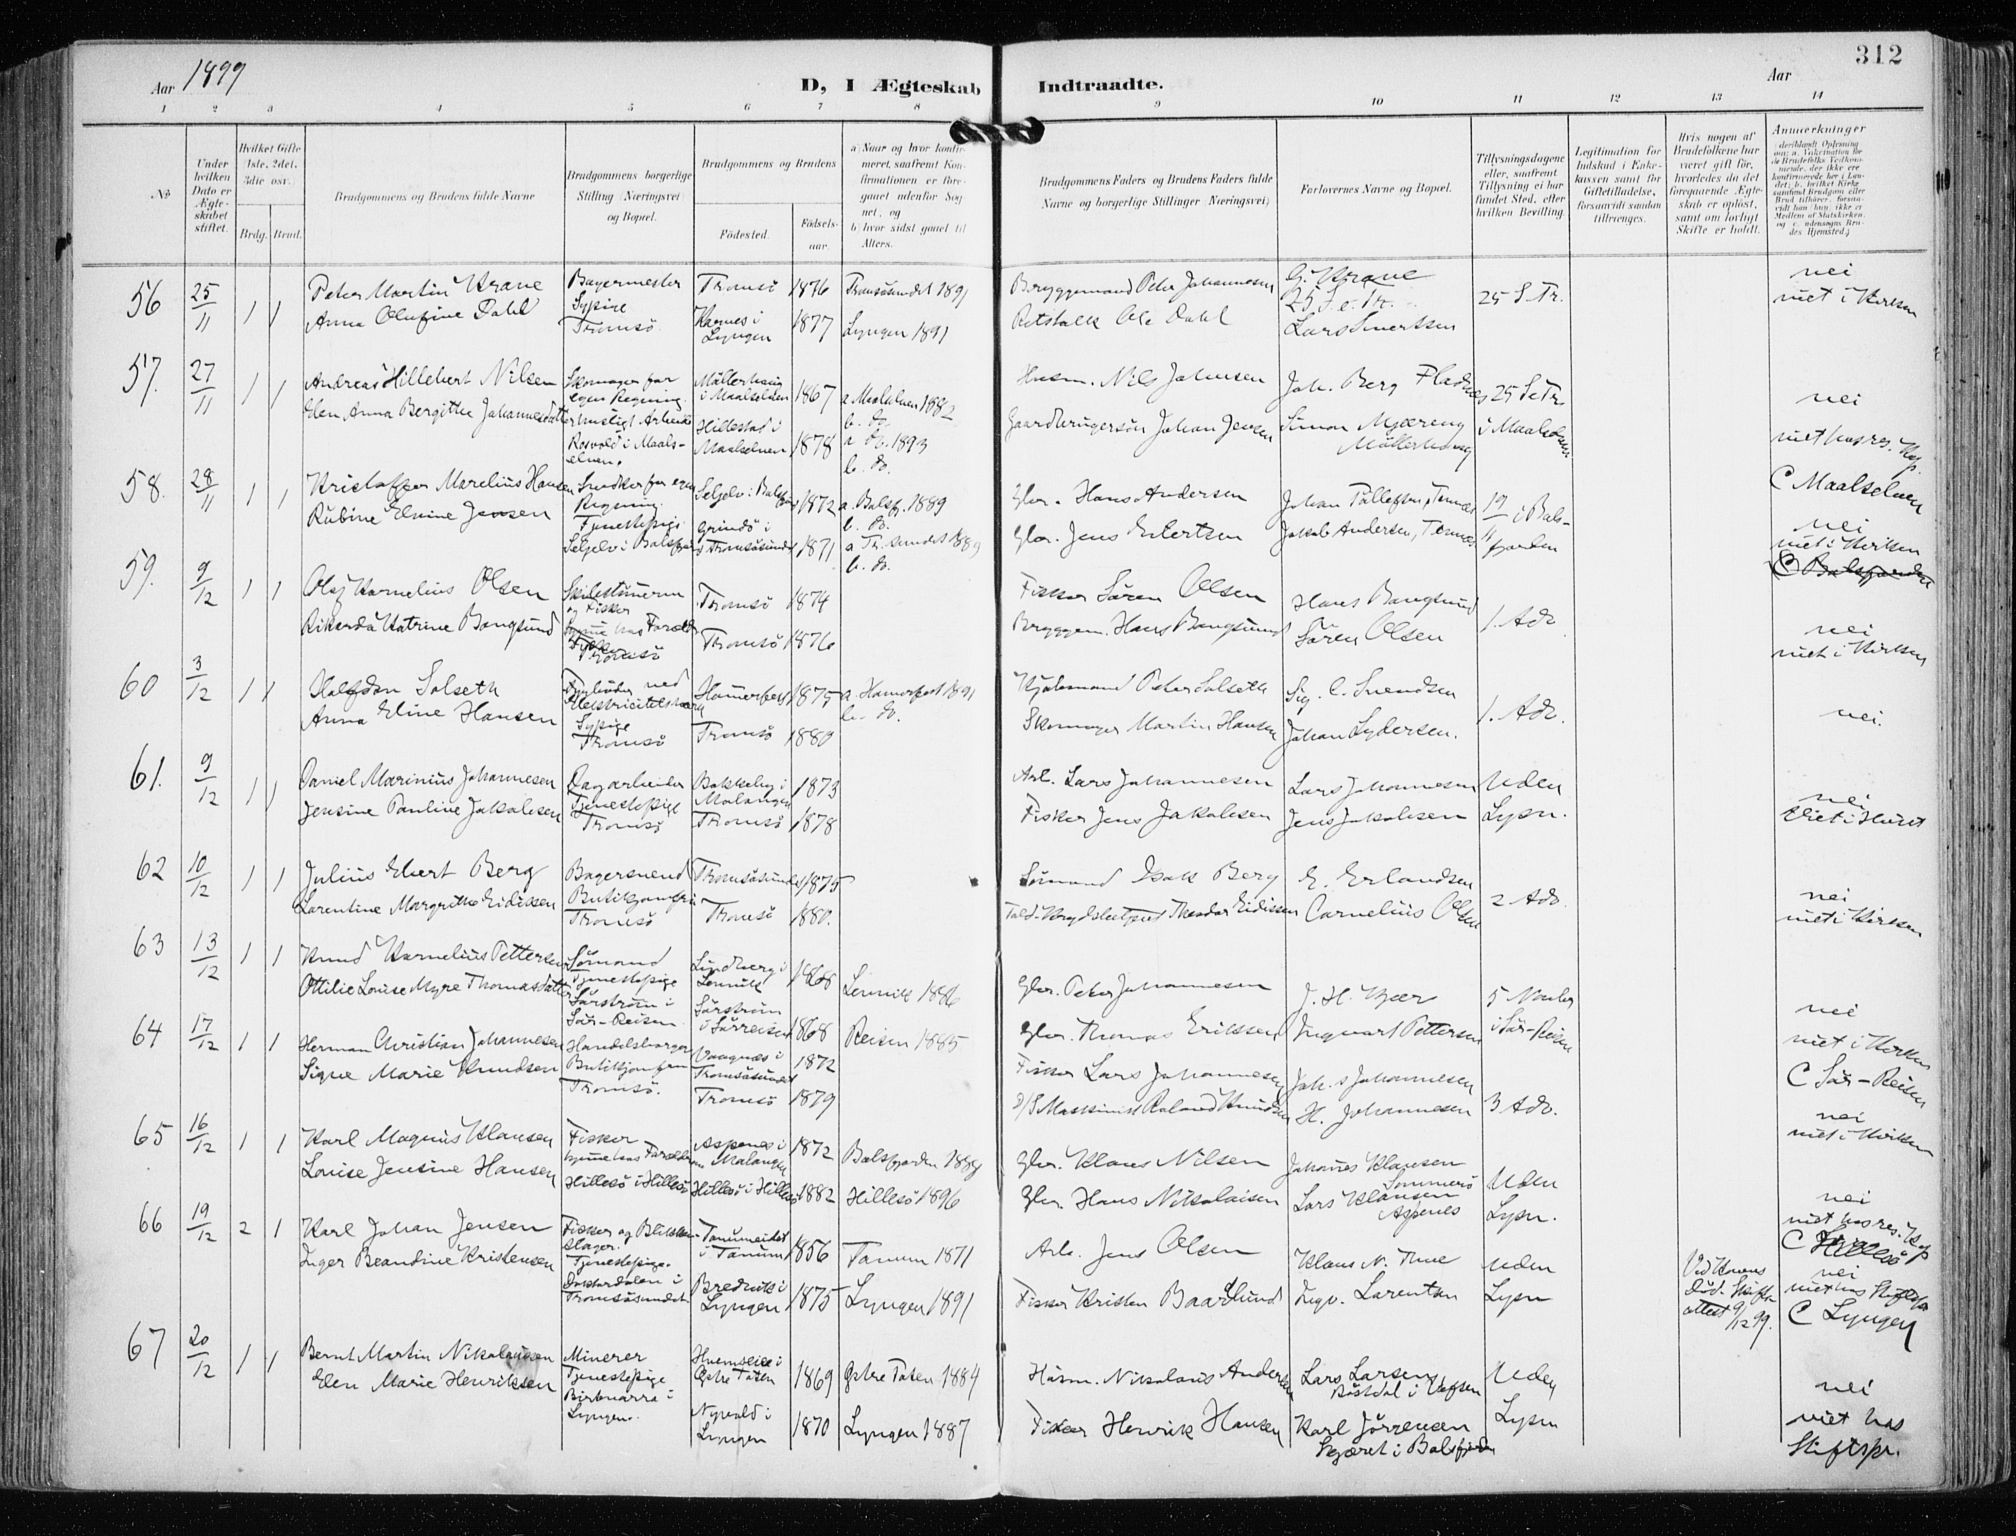 312
Aar 1899
D, I Ægteskab Indtraadte.
Aar
1 2 3 4 5 6 7 8 9 10 11 12 13 14
No
Under hvilken Dato er Ægteskabet stiftet.
Hvilket Gifte 1ste, 2det, 3die osv.
Brdg. Brud.
Brudgommens og Brudens fulde Navne
Brudgommens borgerlige Stilling (Næringsvei) og Bopæl.
Brudgommens og Brudens
Fødested.
Fødselsaar.
a) Naar og hvor konfirmeret, saafremt Konfirmationen er foregaaet udenfor Sognet, og
b) hvor sidst gaaet til Alters.
Brudgommens Faders og Brudens Faders fulde Navne og borgerlige Stillinger (Næringsvei)
Forlovernes Navne og Bopæl.
Tillysningsdagene eller, saafremt Tillysning ei har fundet Sted, efter hvilken Bevilling.
Legitimation for Indskud i Enkekassen samt for Giftetilladelse, forsaavidt saadan tiltrænges.
Hvis nogen af Brudefolkene har været gift før, hvorledes da det foregaaende Ægteskab er opløst, samt om lovligt Skifte er holdt.
Anmerkninger
56 25/11 1 1 Peter Martin Krane Bagermester Tromsö 1876 Tromsösundet 1891 Bryggemand Peter Johannesen G. Krane 25 S. Tr. nei
Anna Olufine Dahl Sypige Tromsö. Lyngen 1877 Lyngen 1891 Ole Dahl Lars viet i Kirken
57. 27/11 1 1 Andreas Hillebert Nilsen Skomager for egen Regning. i Maalselven 1867 a Maalselven 1882 b. do. Husm. Nils Johansen Joh. Berg 25 S e Tr. nei
Elen Anna Bergitte Johannesdatter husligt Arbeide Hillestad i Maalselven 1878 a do. 1893 b. do. Johan Jensen Simon i Maalselven
C Maalselven
58. 28/11 1 1 Kristoffer Marelius Hansen Snedker for egen Regning. Seljelv i Balsfjord 1872 a. Balsfj. 1889 b. do. Gbr. Hans Andersen Johan Tollefsen, 19/11 i Balsfjorden nei
Rubine Elvine Jensen Tjenestepige Seljelv i Balsfjord Grindö i Tromsösundet 1871. a Tr. sundet 1889 b. do. Gbr. Jens Eilertsen Jakob Andersen, viet i Kirken
59. 9/12 1 1 Olaf Kornelius Olsen og Fisker Tromsö 1874 Fisker Sören Olsen Hans Bangsund 1. Adv. nei
Rikarda Katrine Bangsund Tromsö Tromsö 1876 Bryggem. Hans Bangsund Sören Olsen viet i Kirken
60 3/12 1 1 Halfdan Solseth Fyrböder ved Elektricitetsværk Hamerfest 1875 a. Hamerfest 1891 b. do. Peter Solseth Sig. C. Svendsen 1. Adv. nei.
Anna Eline Hansen Sypige Tromsö Tromsö 1880 Skomager Martin Hansen Johan Sydersen.
61. 9/12 1 1 Daniel Marinius Johannesen Dagarbeider Bakkeby i Malangen 1873 Arb. Lars Johannesen Lars Johannesen Uden nei
Jensine Pauline Jakobsen Tjenestepige Tromsö Tromsö 1878 Fisker Jens Jakobsen Jens Jakobsen Lysn. viet i Huset
62 10/12 1 1 Julius Ebert Berg Bagersvend Tromsösundet 1875 Sömand Isak Berg E. Erlandsen 2 Adv. nei
Larentine Margrethe Eidissen Butikjomfru Tromsö Tromsö 1880. Theodor Eidissen Cornelius Olsen viet i Kirken
63 13/12 1 1 Knud Kornelius Pettersen Sömand Lindberg i Lenvik 1868 Lenvik 1886 Gbr. Peter Johannesen J. H. Kjær 5 Novbr nei
Ottilie Louise Myre Thomasdatter Tjenestepige Sörström i Sör-Reisen Sörström i Sörreisen 1868 Reisen 1885 Gbr. Thomas Erikssen Ingvart Pettersen i Sör-Reisen viet i Kirken
C Sör-Reisen
64 17/12 1 1 Herman Christian Johannesen Handelsborger Vaagnæs i Tromsösundet 1872 Fisker Lars Johannesen Joh. s Johannesen 3 Adv. nei
Signe Marie Knudsen Butikjomfru Tromsö. Tromsö 1879 D/S Maskinist Roland Knudsen H. Johannesen viet i Kirken
65 16/12 1 1 Karl Magnus Klausen Fisker Aspenes i Malangen 1872 Balsfjorden 1888 Gbr. Klaus Nilsen Johannes Klausen Sommerö Uden nei
Louise Jensine Hansen Hillesö i Hillesö Hillesö i Hillesö 1882 Hillesö 1896 Gbr. Hans Nikolaisen Lars Klausen Aspenes Lysn. viet hos res. Kap
C Hillesö
66 19/12 2 1 Karl Johan Jensen Fisker og Blikkenslager. i Tanum 1856 Tanum 1871 Arb. Jens Olsen Klaus N. Uden nei
Inger Beandine Kristensen Tjenestepige. Tromsösundet Bredvik i Lyngen 1875 Lyngen 1891 Fisker Kristen Baardlund Ingv. Larentsen Lysn C Lyngen
67 20/12 1 1 Bernt Martin Nikolaussen Minerer Östre Toten 1869 Östre Toten 1884 Husm. Nikolaus Andersen Lars Larsen Uden nei
Elen Marie Henriksen Tjenestepige Birtavarre i Lyngen. Lyngen 1870 Lyngen 1887 Fisker Henrik Hansen Karl Jörgensen i Balsfjorden Lysn viet hos Stiftspr.